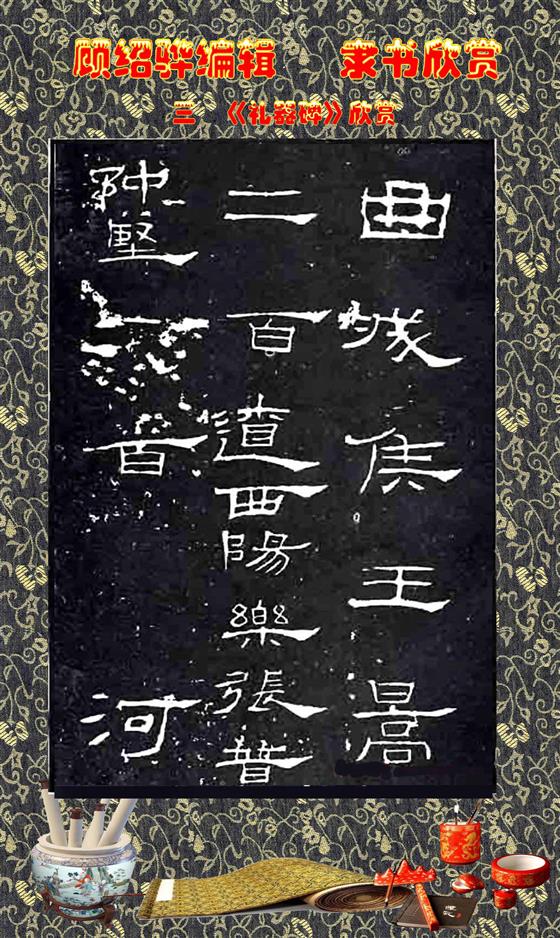 顾绍骅编辑 隶书欣赏
三 《礼器碑》欣赏
曲成侯王暠
二百遼西陽樂張普
仲堅百河